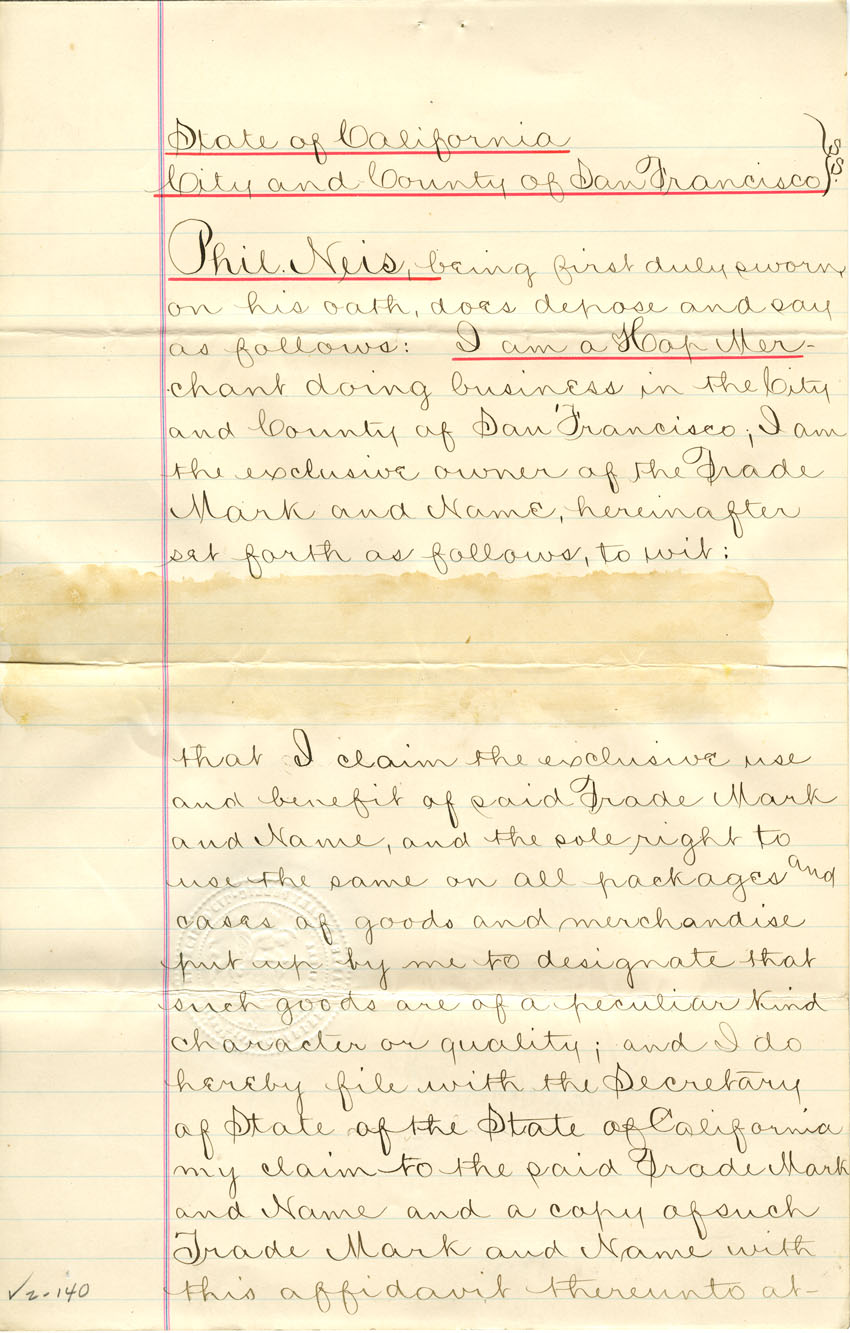 State of California
City and County of San Francisco } SS.
Phil. Neis, being first duly sworn,
on his oath, does depose and say
as follows: I am a Hop Mer-
chant doing business in the City
and County of San Francisco; I am
the exclusive owner of the Trade
Mark and Name, hereinafter
set forth as follows, to wit:
that I claim the exclusive use
and benefit of said Trade Mark
and Name, and the sole right to
use the same on all packages and
cases of goods and merchandise
put up by me to designate that
such goods are of a peculiar kind
character or quality; and I do
hereby file with the Secretary
of State of the State of California
my claim to the said Trade Mark
and Name and a copy of such
Trade Mark and Name with
this affidavit thereunto at-
√2-140